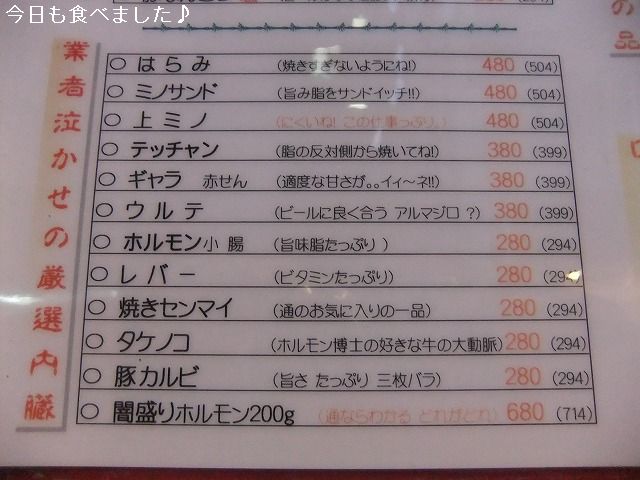 今日も食べました♪
の
品
業者泣かせの厳選内臓
○ はらみ (焼きすぎないようにね!) 480 (504)
○ ミノサンド (旨み脂をサンドイッチ!!) 480 (504)
○ 上ミノ (にくいね! この仕事っぷり。) 480 (504)
○ テッチャン (脂の反対側から焼いてね!) 380 (399)
○ ギャラ 赤せん (適度な甘さが。。イィ～ネ!!) 380 (399)
○ ウルテ (ビールに良く合う アルマジロ ?) 380 (399)
○ ホルモン小腸 (旨味脂たっぷり ) 280 (294)
○ レバー (ビタミンたっぷり) 280 (294)
○ 焼きセンマイ (通のお気に入りの一品) 280 (294)
○ タケノコ (ホルモン博士の好きな牛の大動脈) 280 (294)
○ 豚カルビ (旨さ たっぷり 三枚バラ) 280 (294)
○ 闇盛りホルモン200g (通ならわかる どれがどれ) 680 (714)